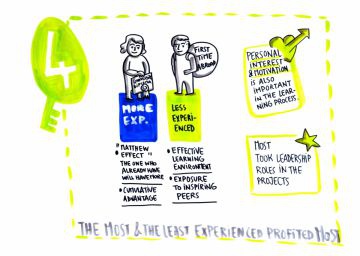 4
FIRST
TIME
ABROAD
MORE
EXP.
LESS
EXPERI-
ENCED
"MATTHEW
EFFECT"
THE ONE WHO
ALREADY HAVE
WILL HAVE MORE
• CUMULATIVE
ADVANTAGE
• EFFECTIVE
LEARNING
ENVIRONMENT
• EXPOSURE
TO INSPIRING
PEERS
PERSONAL
INTEREST
& MOTIVATION
IS ALSO
IMPORTANT
IN THE LEAR-
NING PROCESS.
MOST
TOOK LEADERSHIP
ROLES IN THE
PROJECTS
THE MOST & THE LEAST EXPERIENCED PROFITED MOST